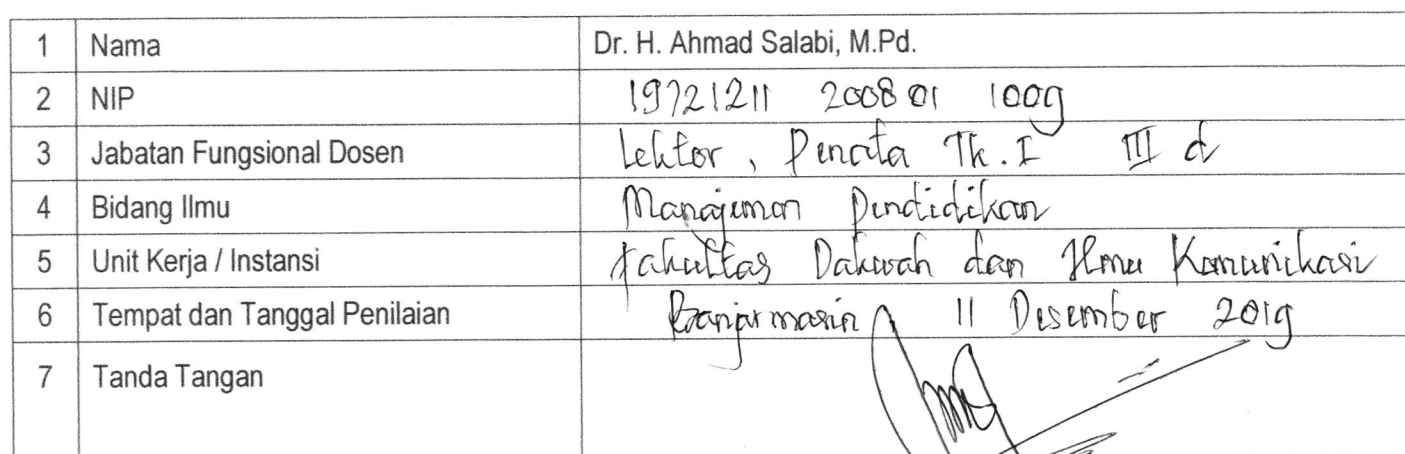 1 Nama Dr. H. Ahmad Salabi, M.Pd.
2 NIP 19721211 200801 1009
3 Jabatan Fungsional Dosen Lektor, Penata Tk. I III d
4 Bidang Ilmu Manajemen Pendidikan
5 Unit Kerja / Instansi Fakultas Dakwah dan Ilmu Komunikasi
6 Tempat dan Tanggal Penilaian Banjarmasin 11 Desember 2019
7 Tanda Tangan